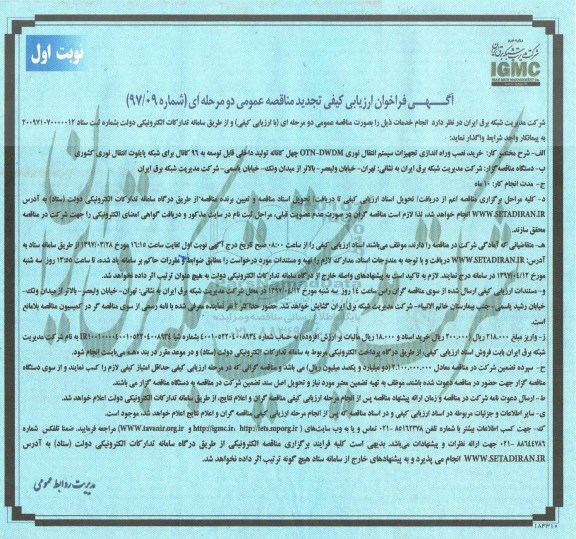 نوبت اول
شرکت مدیریت شبکه برق ایران
IGMC
IRAN GRID MANAGEMENT Co.
آگهی فراخوان ارزیابی کیفی تجدید مناقصه عمومی دو مرحله ای (شماره ۹۷/۰۹)
شرکت مدیریت شبکه برق ایران در نظر دارد انجام خدمات ذیل را بصورت مناقصه عمومی دو مرحله ای (با ارزیابی کیفی) و از طریق سامانه تدارکات الکترونیکی دولت بشماره ثبت ستاد
به پیمانکار واجد شرایط واگذار نماید:
الف- شرح مختصر کار: خرید، نصب وراه اندازی تجهیزات سیستم انتقال نوری OTN-DWDM چهل کاناله تولید داخلی قابل توسعه به ۹۶ کانال برای شبکه پایلوت انتقال نوری کشوری
ب- دستگاه مناقصه گزار: شرکت مدیریت شبکه برق ایران به نشانی: تهران- خیابان ولیعصر- بالاتر از میدان ونک- خیابان یاسمی - شرکت مدیریت شبکه برق ایران
ج- مدت انجام کار: ۱۰ ماه
د- کلیه مراحل برگزاری مناقصه اعم از دریافت/ تحویل اسناد ارزیابی کیفی تا دریافت/ تحویل اسناد مناقصه و تعیین برنده مناقصه از طریق درگاه سامانه تدارکات الکترونیکی دولت (ستاد) به آدرس
WWW.SETADIRAN.IR انجام خواهد شد، لذا لازم است مناقصه گران در صورت عدم عضویت قبلی، مراحل ثبت نام در سایت مذکور و دریافت گواهی امضای الکترونیکی را جهت شرکت در مناقصه
محقق سازند.
هـ- متقاضیانی که آمادگی شرکت در مناقصه را دارند، موظف می‌باشند اسناد ارزیابی کیفی را از ساعت ۰۸:۰۰ صبح تاریخ درج آگهی نوبت اول لغایت ساعت ۱۶:۱۵ مورخ ۱۳۹۷/۰۳/۲۸ از طریق سامانه ستاد به
آدرس: WWW.SETADIRAN.IR دریافت و با توجه به مندرجات اسناد، مدارک لازم را تهیه و مستندات مورد درخواست را مطابق ضوابط و مقررات حاکم بر سامانه یاد شده، تا ساعت ۱۳:۵۵ روز سه شنبه
مورخ ۱۳۹۷/۰۴/۱۲ در سامانه درج نمایند. لازم به تاکید است به پیشنهادهای واصله خارج از درگاه سامانه تدارکات الکترونیکی دولت به هیچ عنوان ترتیب اثر داده نخواهد شد.
و- مستندات ارزیابی کیفی ارسال شده از سوی مناقصه گران راس ساعت ۱۴ روز سه شنبه مورخ ۱۳۹۷/۰۴/۱۲ در محل شرکت مدیریت شبکه برق ایران به نشانی: تهران- خیابان ولیعصر- بالاتر از میدان ونک-
خیابان رشید یاسمی- جنب بیمارستان خاتم الانبیاء- شرکت مدیریت شبکه برق ایران گشایش خواهد شد. حضور حداکثر ۲ نفر نماینده معرفی شده با نامه رسمی از سوی مناقصه گر در کمیسیون مناقصه بلامانع
است.
ز- واریز مبلغ ۲۱۸,۰۰۰ ریال (۲۰۰,۰۰۰ ریال خرید اسناد و ۱۸,۰۰۰ ریال مالیات بر ارزش افزوده) به حساب شماره شماره شبا به نام شرکت مدیریت
شبکه برق ایران بابت فروش اسناد ارزیابی کیفی، از طریق درگاه پرداخت الکترونیکی مربوط به سامانه تدارکات الکترونیکی دولت (ستاد) و در موعد مقرر در بند «هـ» می‌بایست انجام شود.
ح- سپرده تضمین شرکت در مناقصه معادل ۲,۱۰۰,۰۰۰,۰۰۰ (دو میلیارد و یکصد میلیون ریال) می باشد و مناقصه گرانی که در مرحله ارزیابی کیفی حداقل امتیاز کیفی لازم را کسب نمایند و از سوی دستگاه
مناقصه گزار جهت حضور در مناقصه دعوت شده باشند، موظف به تهیه تضمین معتبر مورد نیاز و تحویل اصل سند تضمین شرکت در مناقصه به دستگاه مناقصه گزار می باشند.
ط- ارسال دعوت نامه شرکت در مناقصه و زمان ارائه پیشنهاد مناقصه پس از انجام مرحله ارزیابی کیفی مناقصه گران و اعلام نتایج، از طریق سامانه تدارکات الکترونیکی دولت اعلام خواهد شد.
ی- سایر اطلاعات و جزئیات مربوطه در اسناد ارزیابی کیفی و در اسناد مناقصه که پس از انجام مرحله ارزیابی کیفی مناقصه گران و اعلام نتایج اعلام خواهد شد، موجود است.
ک- جهت کسب اطلاعات بیشتر با شماره تلفن ۸۵۱۶۲۳۷۸-۰۲۱ تماس و یا به وب سایت‌های (http://iets.mporg.ir ،http://igmc.ir و WWW.tavanir.org.ir) مراجعه فرمایید. ضمنا تلفکس شماره
۸۸۶۴۴۷۸۶-۰۲۱ جهت ارائه نظرات و پیشنهادات می‌باشد. بدیهی است کلیه فرایند برگزاری مناقصه الکترونیکی از طریق درگاه سامانه تدارکات الکترونیکی دولت (ستاد) به آدرس
WWW.SETADIRAN.IR انجام می پذیرد و به پیشنهادهای خارج از سامانه ستاد هیچ گونه ترتیب اثر داده نخواهد شد.
مدیریت روابط عمومی
۱۸۳۳۱۰